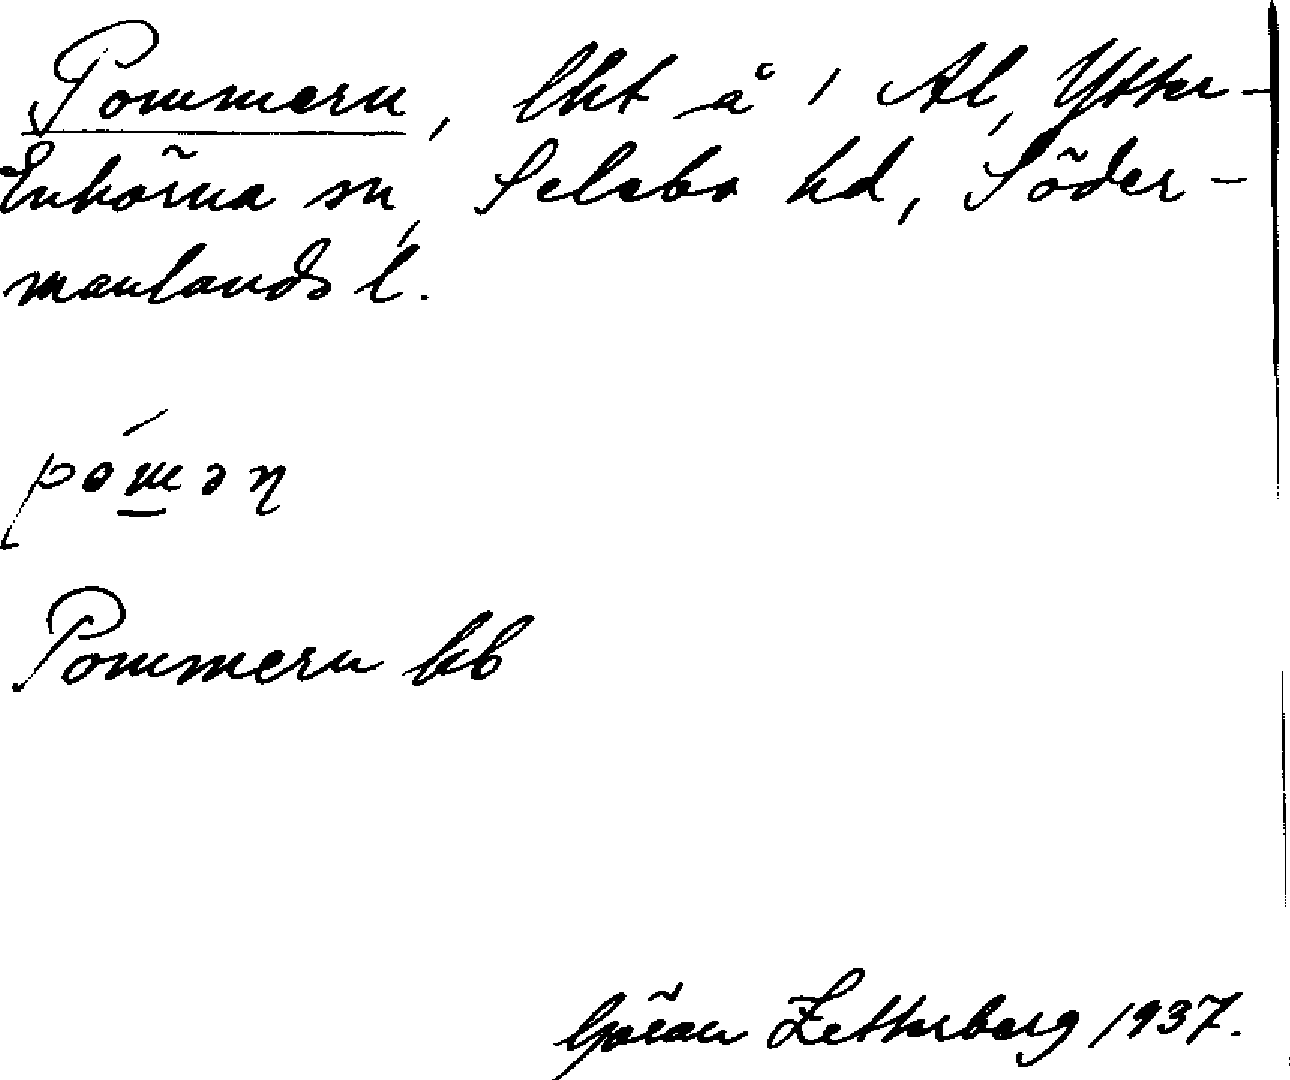 Pommern, lht å 1 Al, Ytter-
Enhörna sn, Selebo hd, Söder-
manlands l.
pómən
Pommern hb
Göran Zetterberg 1937.